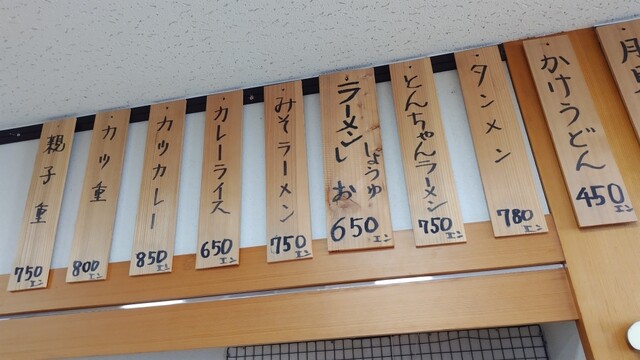 かけうどん
450エン
タンメン
780エン
とんちゃんラーメン
750エン
ラーメン しょうゆ しお
650エン
みそラーメン
750エン
カレーライス
650エン
カツカレー
850エン
カツ重
800エン
親子重
750エン